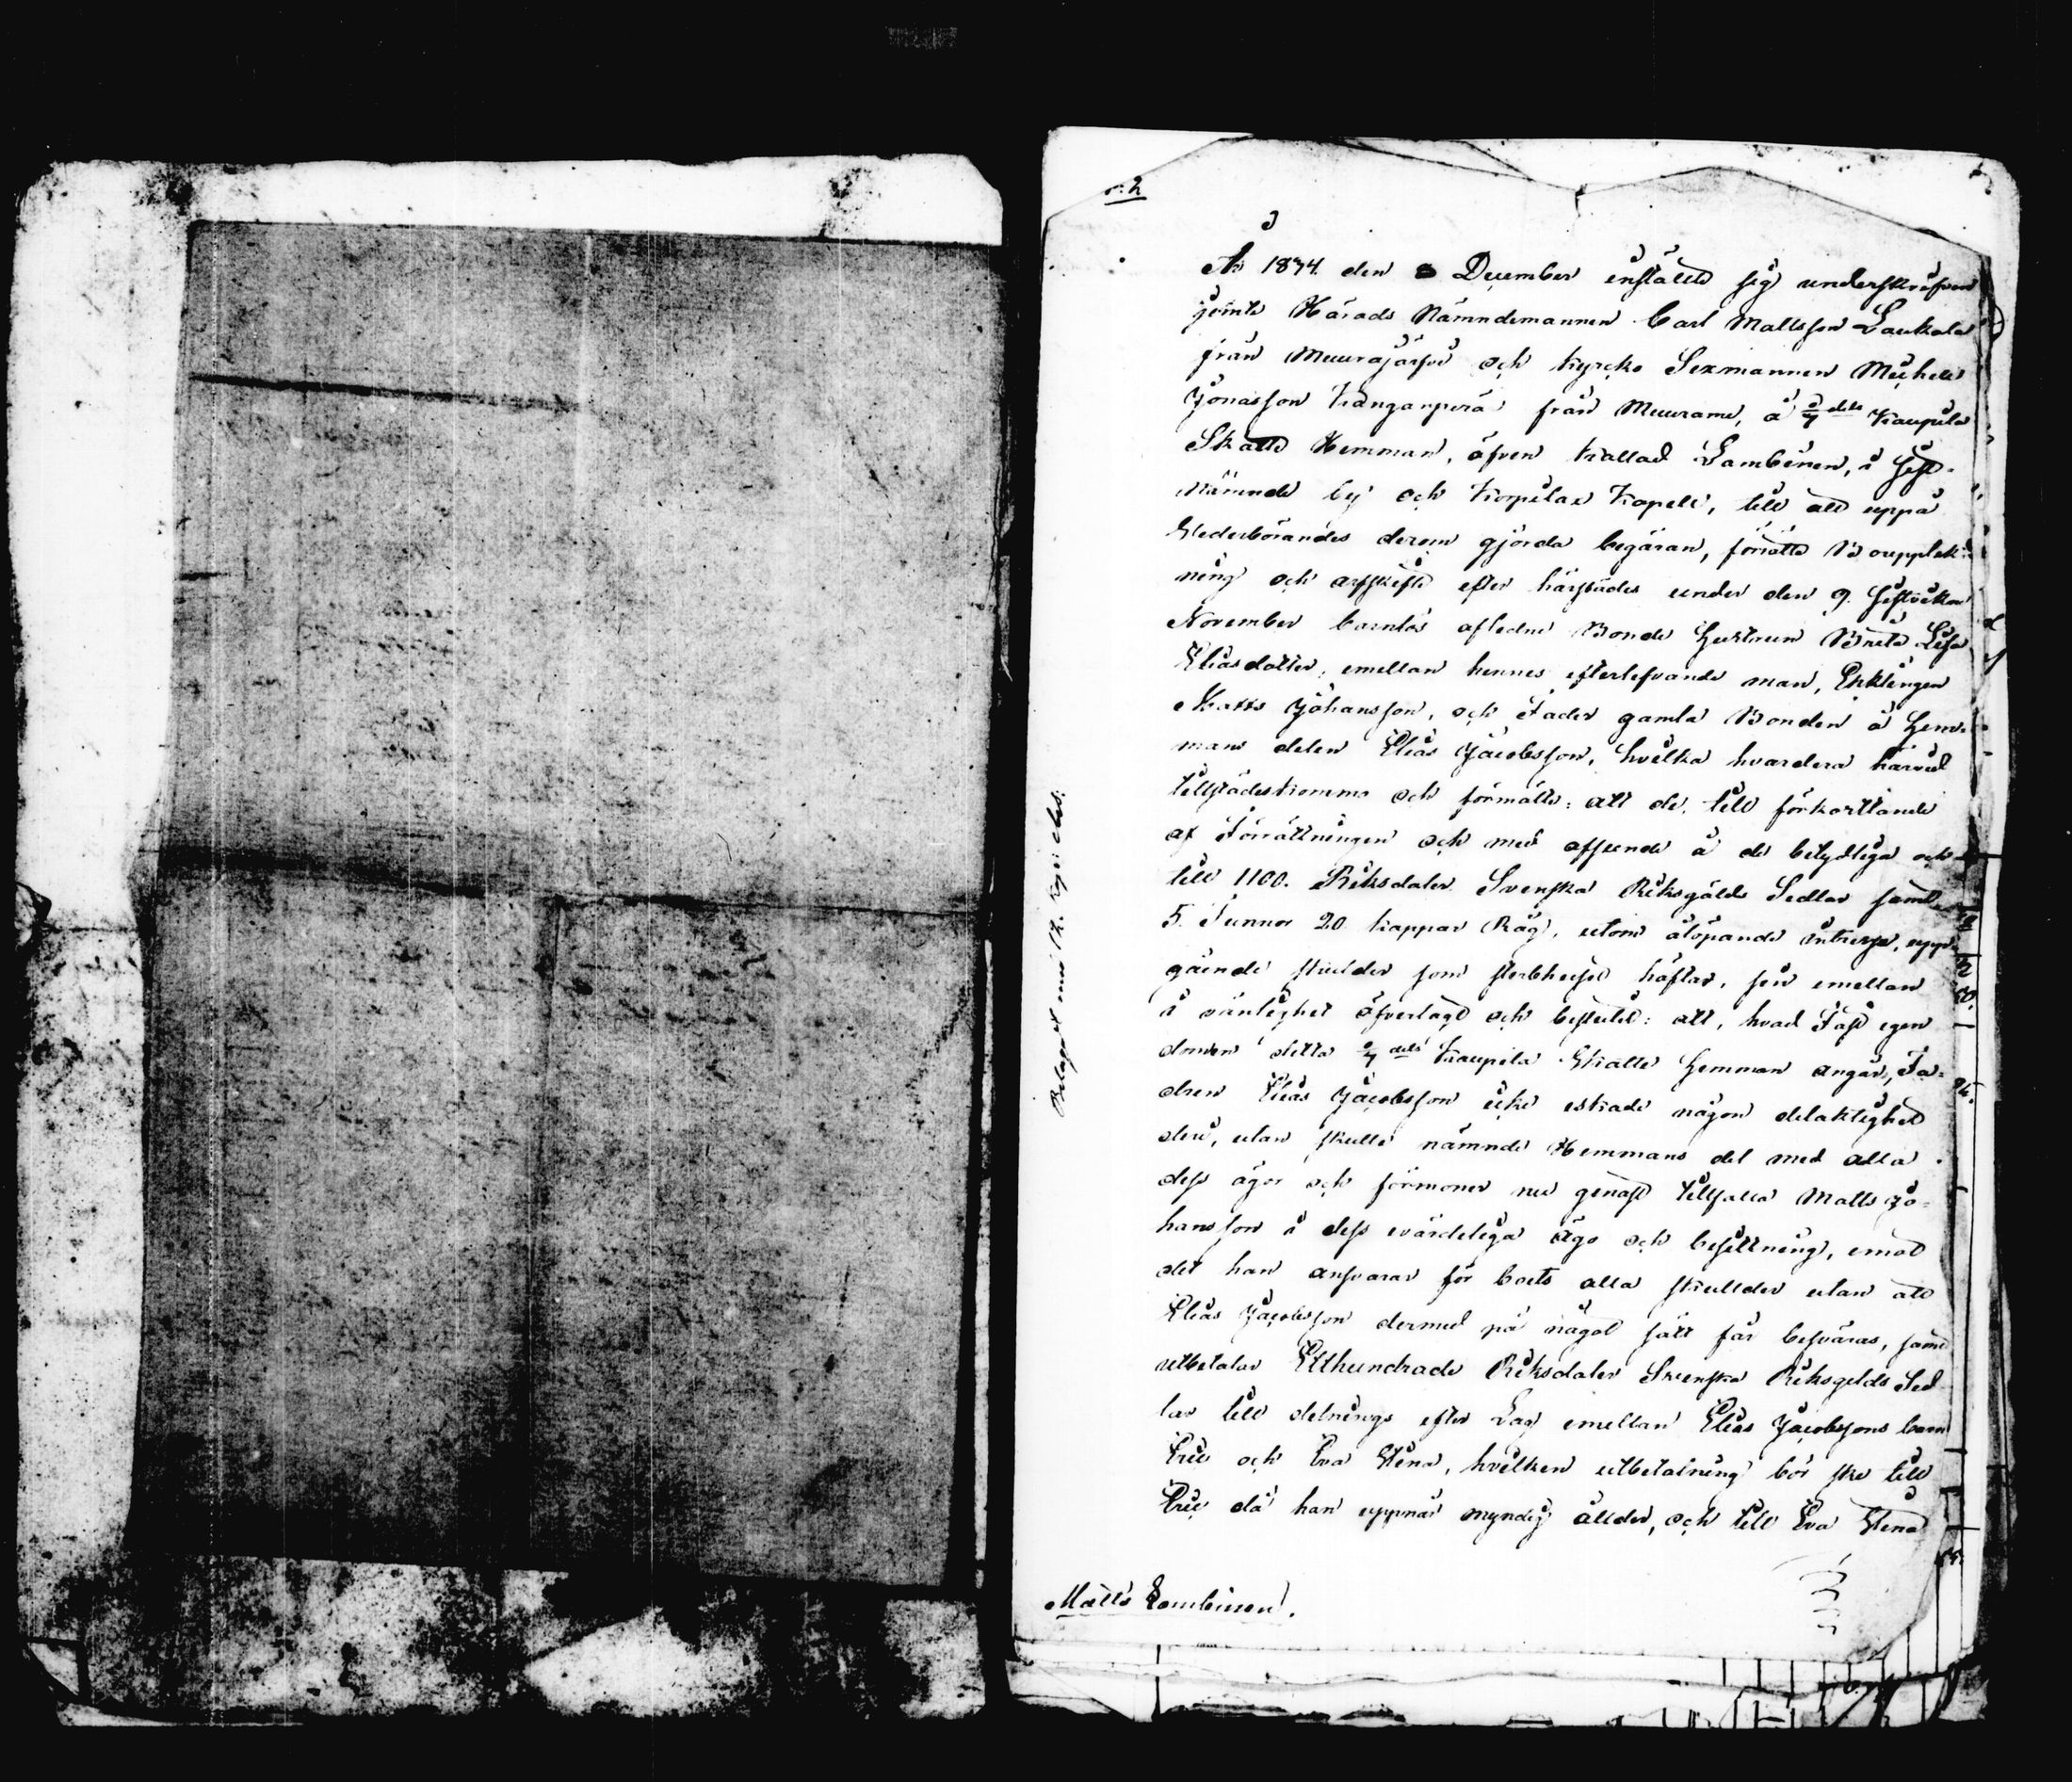 År 1834. den 8 December inställte sig underskrifven
jemte Härads Nämndemannen Carl Mattsson Laukala
från Muurasjärfvi och kyrcko Sexmannen Michell
Jönasson Kanganperä från Muurame, å 3/4 dels Kaupila
Skatte Hemman, äfven kallad Lambinen, i sist-
nämnde by och Korpilax Kapell, till att uppå
Wederbörandes derom gjorda begäran, förrätta Bouppteck-
ning och arfskifte efter härstädes under den 9. sistvekne
November barnlös afledne Bonde hustrun Brita Lisa
Eliasdotter, emellan hennes efterlefvande man, Enklingen
Matts Johansson, och Fader gamla Bonden å hem-
mans delen Elias Jacobsson, hvilka hvardera härvid
tillstädeskommo och förmälte: att de, till förkortande
af Förrättningen och med afseende å de betydliga och
till 1100. Riksdaler Svenska Riksgälds Sedlar samt
5. Tunnor 20 kappar Råg, utom älöpande intresse, upp-
gående skulder som sterbhuset häftar, sin emellan
i vänlighet öfverlagt och beslutit: att, hvad Fast egen
domen detta 3/4 dels Kaupila Skatte hemman angår, Fa-
dren Elias Jacobsson icke eskade någon delaktighet
deri, utan skulle nämnde Hemmans del med alla
dess ägor och förmoner nu genast tillfalla Matts Jo-
hansson i dess evärdeliga ägo och besittning, emot
det han ansvarar för boets alla skullder utan att
Elias Jacobsson dermed på något sätt får besväras, samt
utbetalar Etthundrade Riksdaler Svenska Riksgelds Sed
lar till delnings efter Lag emellan Elias Jacobssons barn
Eric och Eva Stina, hvilken utbetalning bör ske till
Eric då han uppnår myndig ållder, och till Eva Stina
Matts Lambinen.